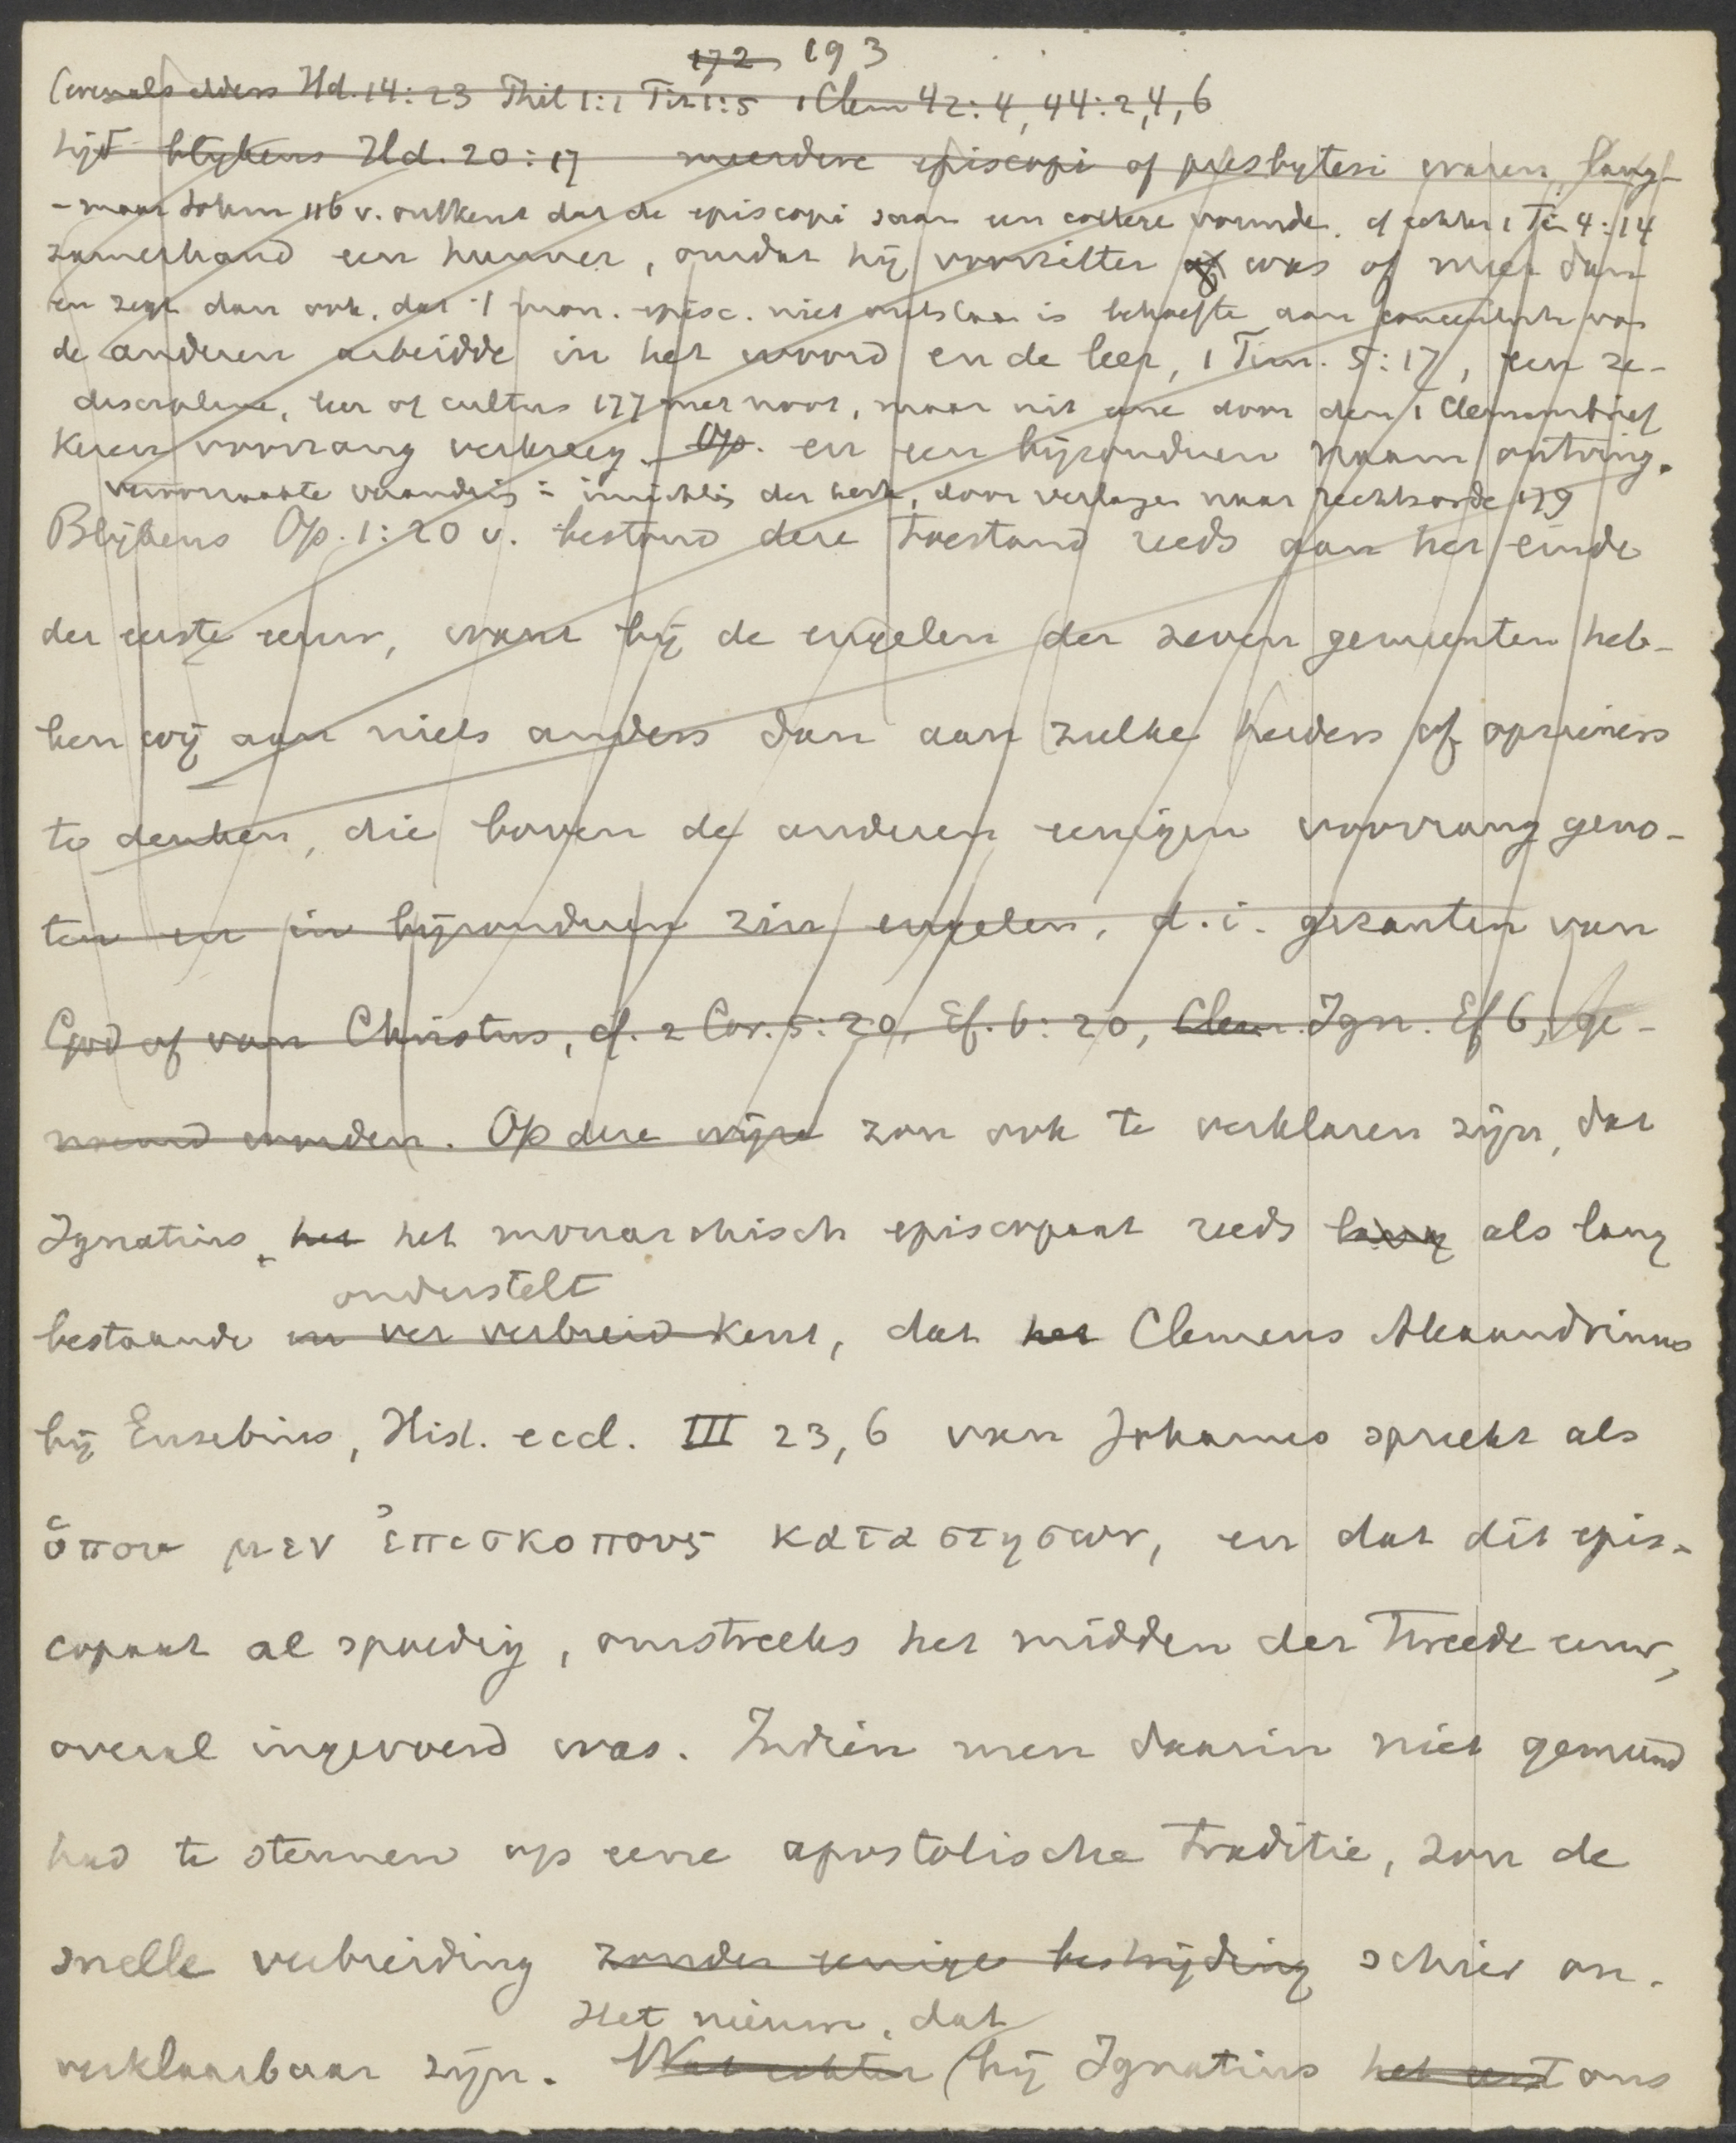 172 193
(evenals elders Hd. 14:23 Phil 1:1 Tit 1:5 1 Clem 42:4, 44:2,4,6
tijd blijkens Hd. 20:17 meerdere episcopi of presbyteri waren, lang-
- maar Sohm 116 v. ontkent dat de episcopi saam een college vormden. cf echter 1 Tim 4:14
zamerhand een hunner, omdat hij voorzitter of was of meer dan
en zegt dan ook, dat 't mon. episc. niet ontstaan is behoefte aan concentratie van
de anderen arbeidde in het woord en de leer, 1 Tim. 5:17, een ze-
discipline, leer of cultus 177 met noot, maar uit eene door den 1 Clemensbrief
keren voorrang verkreeg. Op. en een bijzonderen naam ontving.
veroorzaakte verandering der kerk, door verlangen naar rechtsorde 179
Blijkens Op. 1:20 v. bestond deze toestand reeds aan het einde
der eerste eeuw, want bij de engelen der zeven gemeenten heb-
ben wij aan niets anders dan aan zulke herders of opzieners
te denken, die boven de anderen eenigen voorrang geno-
ten en in bijzonderen zin engelen, d.i. gezanten van
God of van Christus, cf. 2 Cor. 5:20, Ef. 6:20, Clem. Ign. Ef 6, ge-
noemd worden. Op deze wijze zou ook te verklaren zijn, dat
Ignatius het het monarchisch episcopaat reeds lang als lang
onderstelt
bestaande en ver verbreid kent, dat het Clemens Alexandrinus
bij Eusebius, Hist. eccl. III 23, 6 van Johannes spreekt als
ὅπου μεν ἐπισκοπους καταστησων, en dat dit epis-
copaat al spoedig, omstreeks het midden der tweede eeuw,
overal ingevoerd was. Indien men daarin niet gemeend
had te steunen op eene apostolische traditie, zou de
snelle verbreiding zonder eenige bestrijding schier on-
Het nieuwe, dat
verklaarbaar zijn. Wat echter bij Ignatius het eerst ons